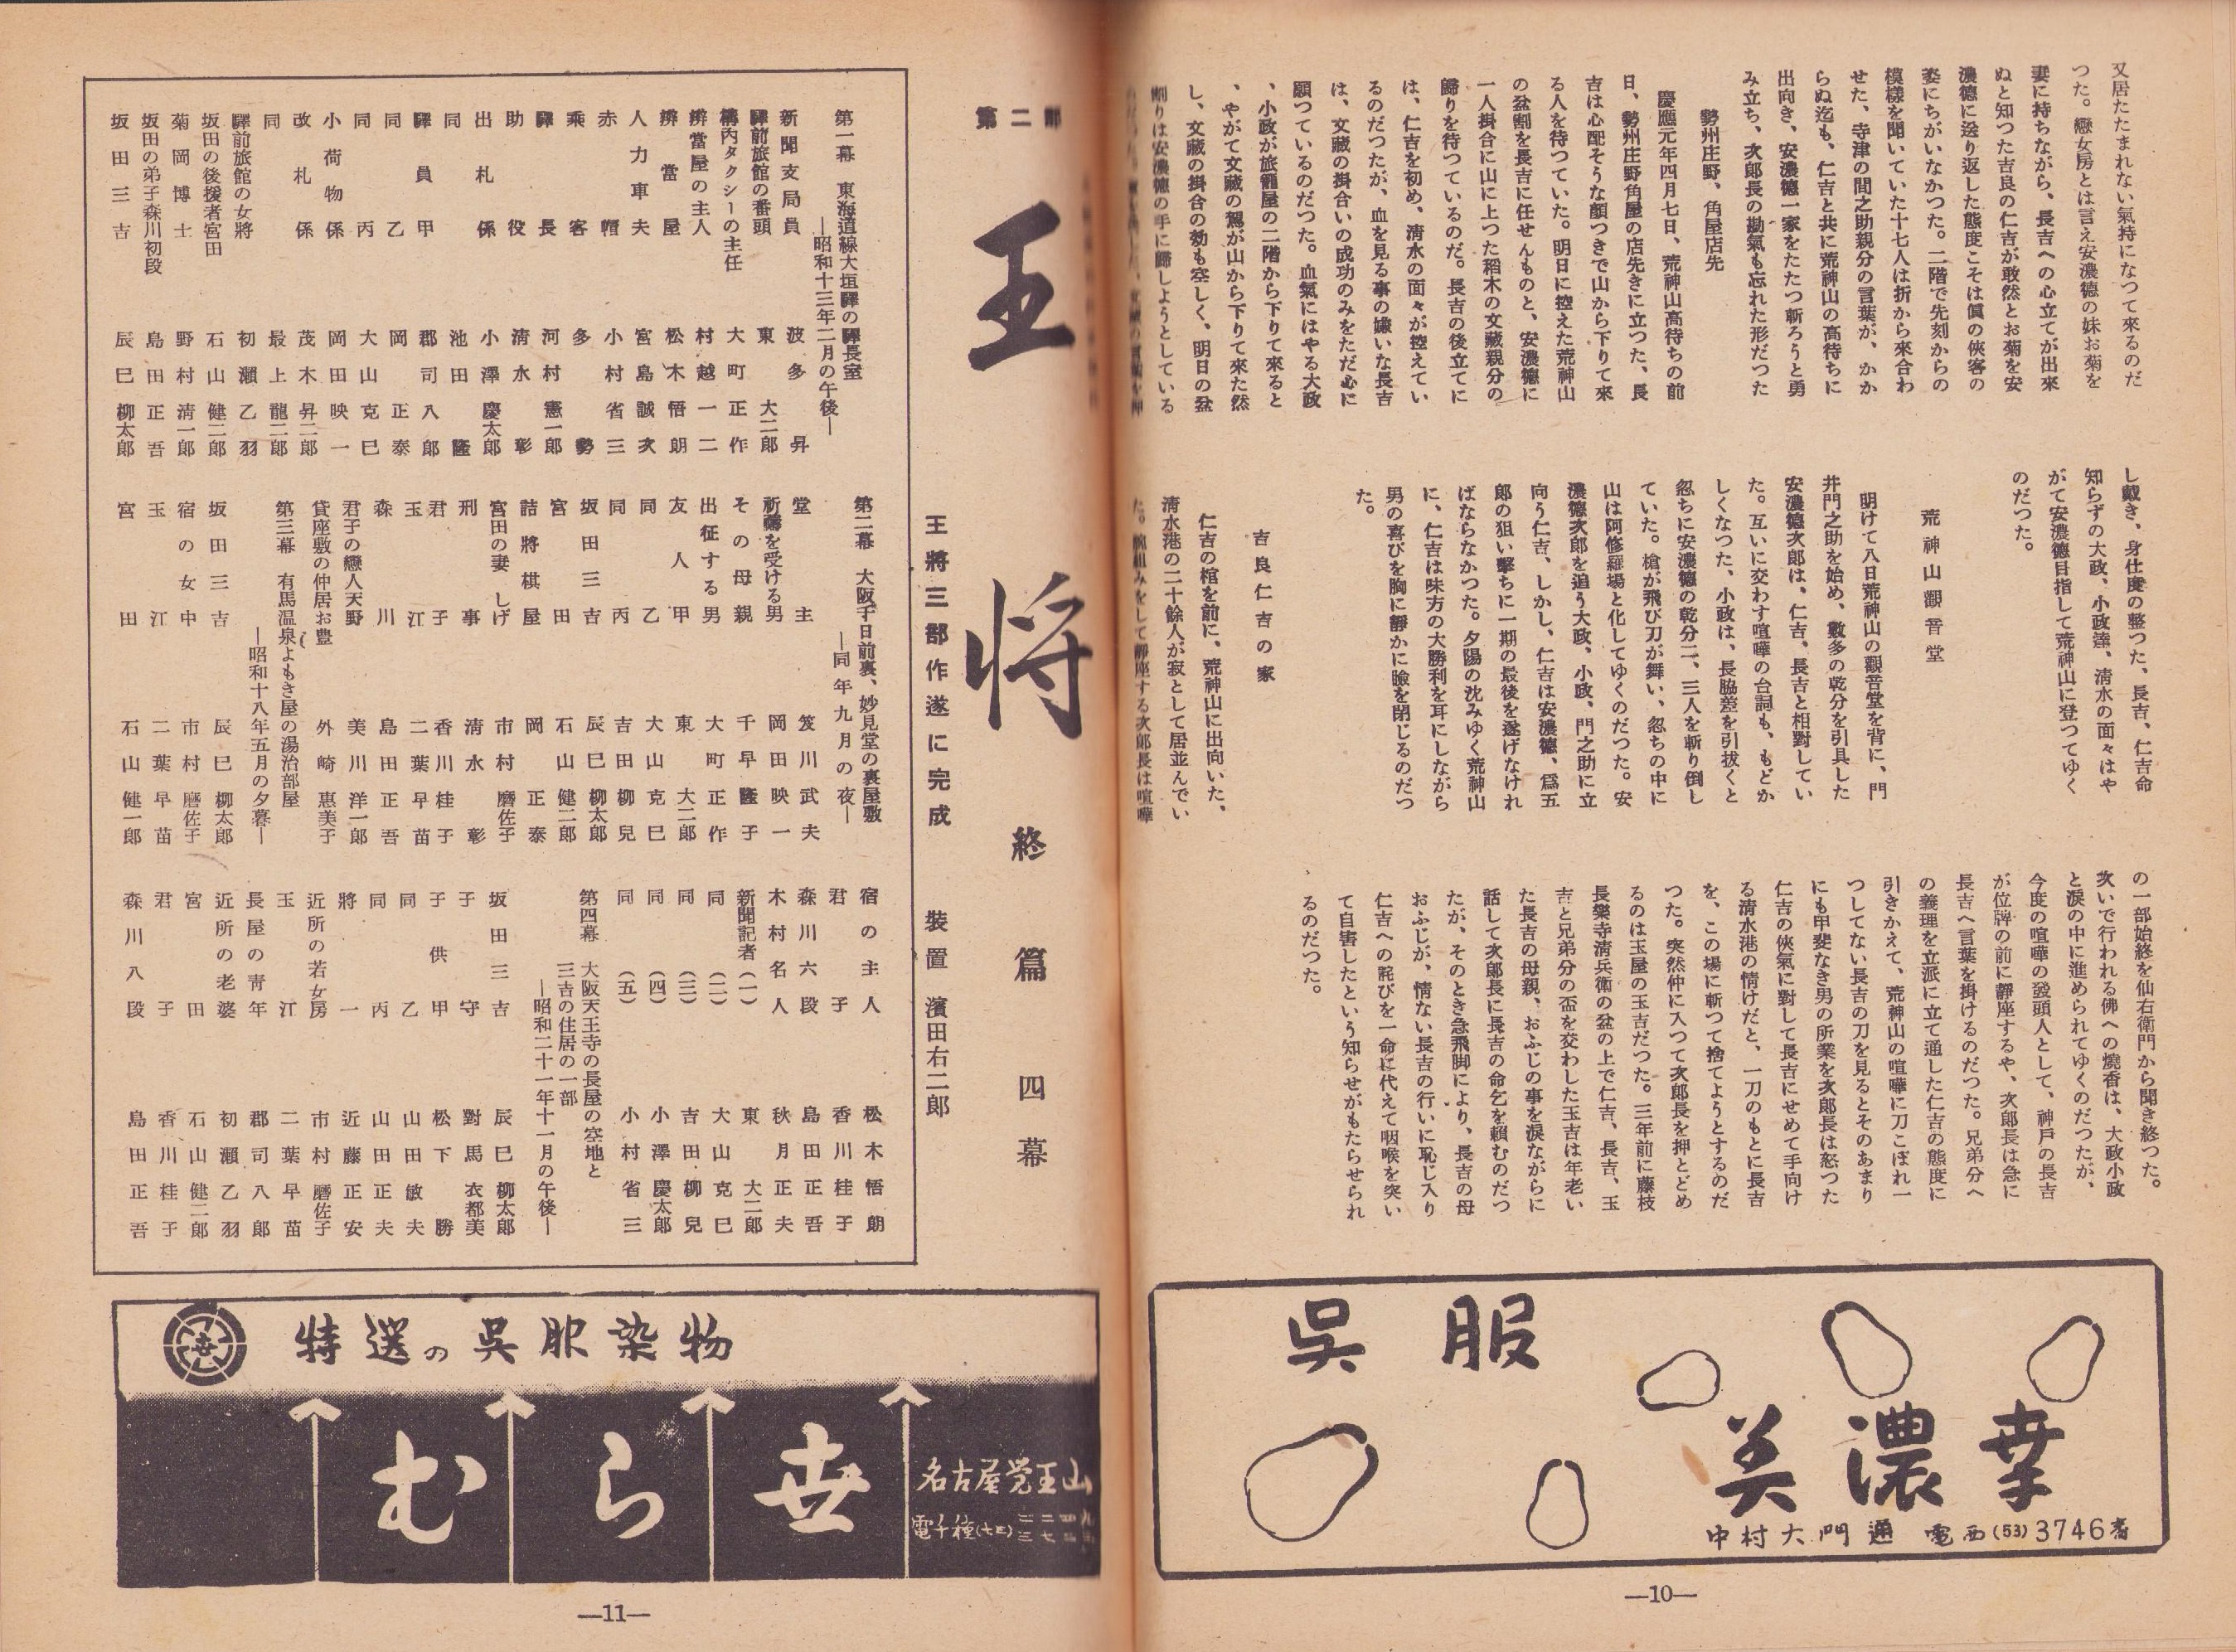 又居たたまれない氣持になつて來るのだ
つた。戀女房とは言え安濃德の妹お菊を
妻に持ちながら、長吉への心立てが出來
ぬと知つた吉良の仁吉が敢然とお菊を安
濃德に送り返した態度こそは眞の俠客の
姿にちがいなかつた。二階で先刻からの
模樣を聞いていた十七人は折から來合わ
せた、寺津の間之助親分の言葉が、かか
らぬ迄も、仁吉と共に荒神山の高待ちに
出向き、安濃德一家をたたつ斬ろうと勇
み立ち、次郎長の勘氣も忘れた形だつた
勢州庄野、角屋店先
慶應元年四月七日、荒神山高待ちの前
日、勢州庄野角屋の店先きに立つた、長
吉は心配そうな顏つきで山から下りて來
る人を待つていた。明日に控えた荒神山
の盆割を長吉に任せんものと、安濃德に
一人掛合に山に上つた稻木の文藏親分の
歸りを待つているのだ。長吉の後立てに
は、仁吉を初め、淸水の面々が控えてい
るのだつたが、血を見る事の嫌いな長吉
は、文藏の掛合いの成功のみをただ心に
願つているのだつた。血氣にはやる大政
、小政が旅籠屋の二階から下りて來ると
、やがて文藏の駕が山から下りて來た然
し、文藏の掛合の効も空しく、明日の盆
割りは安濃德の手に歸しようとしている
し戴き、身仕度の整つた、長吉、仁吉命
知らずの大政、小政達、淸水の面々はや
がて安濃德目指して荒神山に登つてゆく
のだつた。
荒神山觀音堂
明けて八日荒神山の觀音堂を背に、門
井門之助を始め、數多の乾分を引具した
安濃德次郎は、仁吉、長吉と相對してい
た。互いに交わす喧嘩の台詞も、もどか
しくなつた、小政は、長脇差を引拔くと
忽ちに安濃德の乾分二、三人を斬り倒し
ていた。槍が飛び刀が舞い、忽ちの中に
山は阿修羅場と化してゆくのだつた。安
濃德次郎を追う大政、小政、門之助に立
向う仁吉、しかし、仁吉は安濃德、爲五
郎の狙い擊ちに一期の最後を遂げなけれ
ばならなかつた。夕陽の沈みゆく荒神山
に、仁吉は味方の大勝利を耳にしながら
男の喜びを胸に靜かに瞼を閉じるのだつ
た。
吉良仁吉の家
仁吉の棺を前に、荒神山に出向いた、
淸水港の二十餘人が寂として居並んでい
た。腕組みをして靜座する次郎長は喧嘩
の一部始終を仙右衛門から聞き終つた。
次いで行われる佛への燒香は、大政小政
と淚の中に進められてゆくのだつたが、
今度の喧嘩の發頭人として、神戶の長吉
が位牌の前に靜座するや、次郎長は急に
長吉へ言葉を掛けるのだつた。兄弟分へ
の義理を立派に立て通した仁吉の態度に
引きかえて、荒神山の喧嘩に刀こぼれ一
つしてない長吉の刀を見るとそのあまり
にも甲斐なき男の所業を次郎長は怒つた
仁吉の俠氣に對して長吉にせめて手向け
る淸水港の情けだと、一刀のもとに長吉
を、この場に斬つて捨てようとするのだ
つた。突然仲に入つて次郎長を押とどめ
るのは玉屋の玉吉だつた。三年前に藤枝
長樂寺淸兵衛の盆の上で仁吉、長吉、玉
吉と兄弟分の盃を交わした玉吉は年老い
た長吉の母親、おふじの事を淚ながらに
話して次郎長に長吉の命乞を賴むのだつ
たが、そのとき急飛脚により、長吉の母
おふじが、情ない長吉の行いに恥じ入り
仁吉への詫びを一命に代えて咽喉を突い
て自害したという知らせがもたらせられ
るのだつた。
呉服
美濃幸
中村大門通 電西(53)3746番
—10—
第二部
王将 終篇四幕
王將三部作遂に完成 裝置 濱田右二郎
第一幕 東海道線大垣驛の驛長室
—昭和十三年二月の午後—
新聞支局員 波多昇
驛前旅館の番頭 東大二郎
構內タクシーの主任 大町正作
辨當屋の主人 村越一二
辨當屋 松木悟朗
人力車夫 宮島誠次
赤帽 小村省三
乘客 多勢
驛長 河村憲一郎
助役 淸水彰
出札係 小澤慶太郎
同 池田隆
驛員甲 郡司八郎
同乙 岡正泰
同丙 大山克巳
小荷物係 岡田映一
改札係 茂木昇二郎
同 最上龍二郎
驛前旅館の女將 初瀬乙羽
坂田の後援者宮田 石山健二郎
菊岡博士 野村淸一郎
坂田の弟子森川初段 島田正吾
坂田三吉 辰巳柳太郎
第二幕 大阪千日前裏、妙見堂の裏屋敷
—同年九月の夜—
堂主 笈川武夫
祈禱を受ける男 岡田映一
その母親 千早隆子
出征する男 大町正作
友人甲 東大二郎
同乙 大山克巳
同丙 吉田柳兒
坂田三吉 辰巳柳太郎
宮田 石山健二郎
詰將棋屋 岡正泰
宮田の妻しげ 市村磨佐子
刑事 淸水彰
君子 香川桂子
玉江 二葉早苗
森川 島田正吾
君子の戀人天野 美川洋一郎
貸座敷の仲居お豊 外崎惠美子
第三幕 有馬温泉よもき屋の湯治部屋
—昭和十八年五月の夕暮—
坂田三吉 辰巳柳太郎
宿の女中 市村磨佐子
玉江 二葉早苗
宮田 石山健一郎
宿の主人 松木悟朗
君子 香川桂子
森川六段 島田正吾
木村名人 秋月正夫
新聞記者(一) 東大二郎
同(二) 大山克巳
同(三) 吉田柳兒
同(四) 小澤慶太郎
同(五) 小村省三
第四幕 大阪天王寺の長屋の空地と
三吉の住居の一部
—昭和二十一年十一月の午後—
坂田三吉 辰巳柳太郎
子守 對馬衣都美
子供甲 松下勝
同乙 山田敏夫
同丙 山田正夫
將一 近藤正安
近所の若女房 市村磨佐子
玉江 二葉早苗
長屋の靑年 郡司八郎
近所の老婆 初瀬乙羽
宮田 石山健二郎
君子 香川桂子
森川八段 島田正吾
特選の呉服染物
むら世
名古屋覚王山
電千種(七三)
—11—